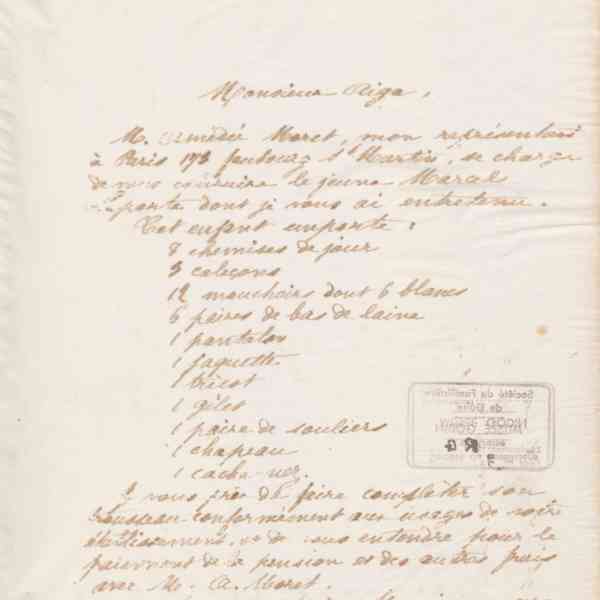 Monsieur Riga,
M. Amédée Moret, mon représentant
à Paris 173 faubourg St Martin, se charge
de vous conduire le jeune Marcel
Laporte dont je vous ai entretenu.
Cet enfant emporte :
8 chemises de jour
3 caleçons
12 mouchoirs dont 6 blancs
6 paires de bas de laine
1 pantalon
1 jaquette
1 tricot
1 gilet
1 paire de souliers
1 chapeau
1 cache-nez.
Je vous prie de faire compléter son
trousseau conformément aux usages de votre
établissement, et de vous entendre pour le
paiement de la pension et des autres frais
avec M. A. Moret.
Société du Familistère
de Guise
GODIN
R.G